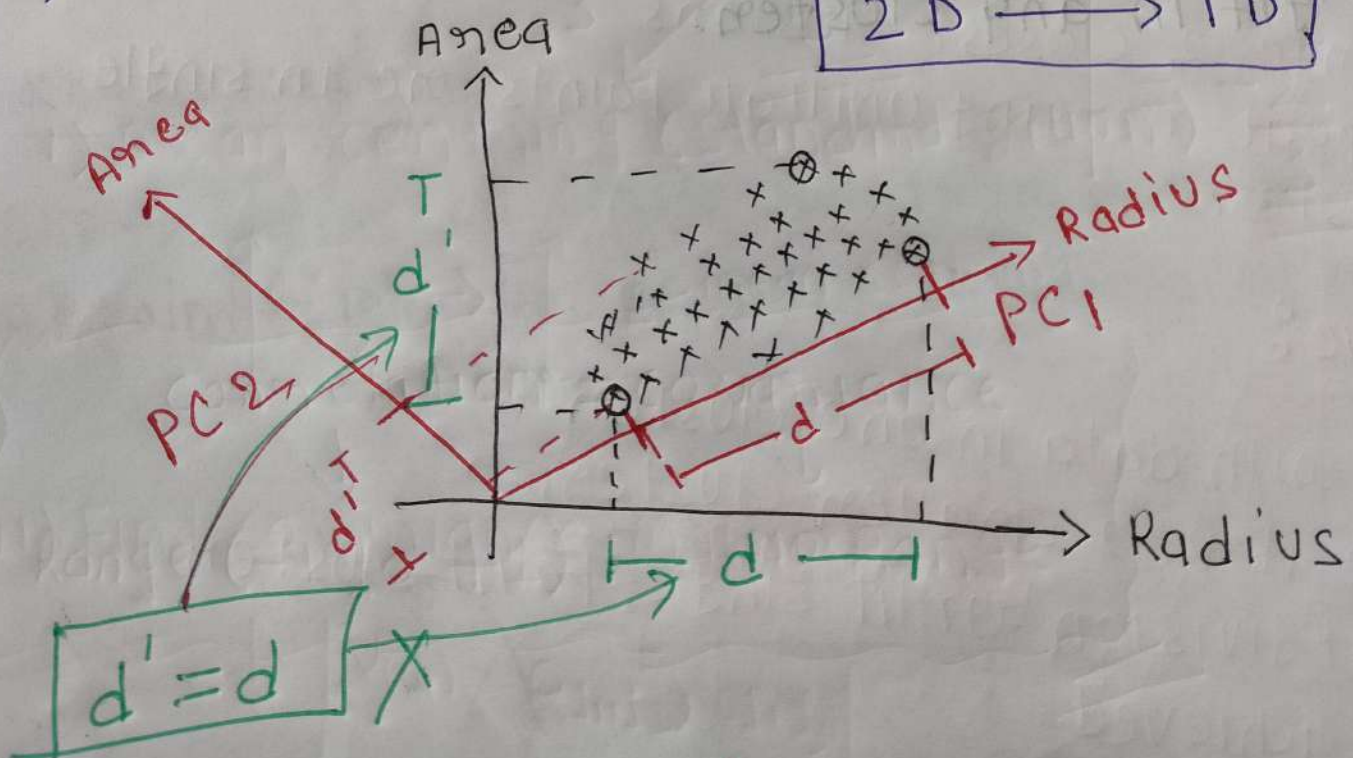 2D → 1D
Area
Area
T
d'
Radius
PC1
PC2
d
d'
Radius
d
d' = d